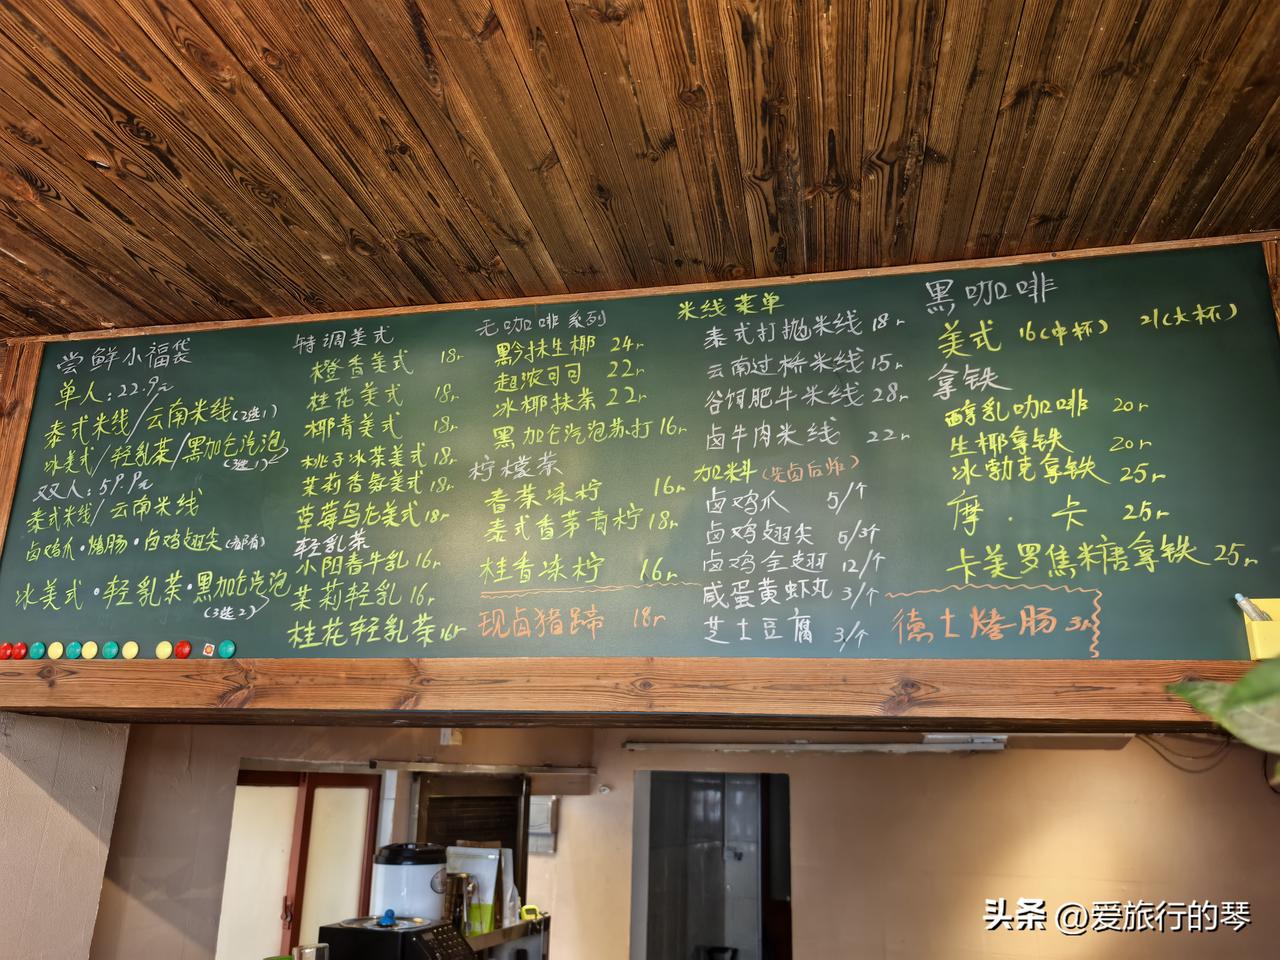 尝鲜小福袋
单人:22.9元
泰式米线/云南米线(2选1)
冰美式/轻乳茶/黑加仑汽泡
(3选1)
双人:59.9元
泰式米线/云南米线
卤鸡爪·烤肠·卤鸡翅尖(都有)
冰美式·轻乳茶·黑加仑汽泡
(3选2)
特调美式
橙香美式 18r
桂花美式 18r
椰青美式 18r
桃子冰茶美式 18r
茉莉香氛美式 18r
草莓乌龙美式 18r
轻乳茶
小阳春牛乳 16r
茉莉轻乳 16r
桂花轻乳茶 16r
无咖啡系列
黔抹生椰 24r
超浓可可 22r
冰椰抹茶 22r
黑加仑汽泡苏打 16r
柠檬茶
香茶冻柠 16r
泰式香茅青柠 18r
桂香冻柠 16r
现卤猪蹄 18r
米线菜单
泰式打抛米线 18r
云南过桥米线 15r
谷饲肥牛米线 28r
卤牛肉米线 22r
加料(先卤后炸)
卤鸡爪 5/个
卤鸡翅尖 5/3个
卤鸡全翅 12/个
咸蛋黄虾丸 3/个
芝士豆腐 3/个
黑咖啡
美式 16(中杯) 21(大杯)
拿铁
醇乳咖啡 20r
生椰拿铁 20r
冰勃克拿铁 25r
摩·卡 25r
卡美罗焦糖拿铁 25r
德士烤肠 3r
头条 @爱旅行的琴